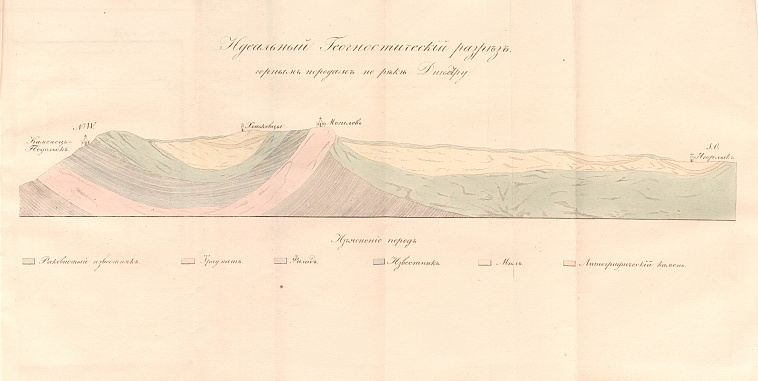 Идеальный Геогностическій разрѣзъ
горнымъ породамъ по рѣкѣ Днѣстру
N.W.
Каменецъ-
Подольскъ
Могилевъ
S.O.
Изъясненіе породъ
Раковистый известнякъ
Гранитъ
Известнякъ
Мѣлъ
Литографическій камень